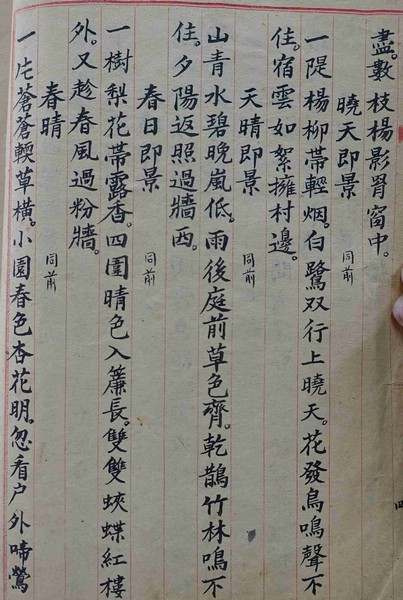 盡。數枝楊影罥窗中。
曉天即景 同前
一隄楊柳帶輕烟。白鷺双行上曉天。花發鳥鳴聲不
住。宿雲如絮擁村邊。
天晴即景 同前
山青水碧晚嵐低。雨後庭前草色齊。乾鵲竹林鳴不
住。夕陽返照過牆西。
春日即景 同前
一樹梨花帶露香。四圍晴色入簾長。雙雙蛺蝶紅樓
外。又趁春風過粉牆。
春晴 同前
一片蒼蒼輭草橫。小園春色杏花明。忽看户外啼鶯